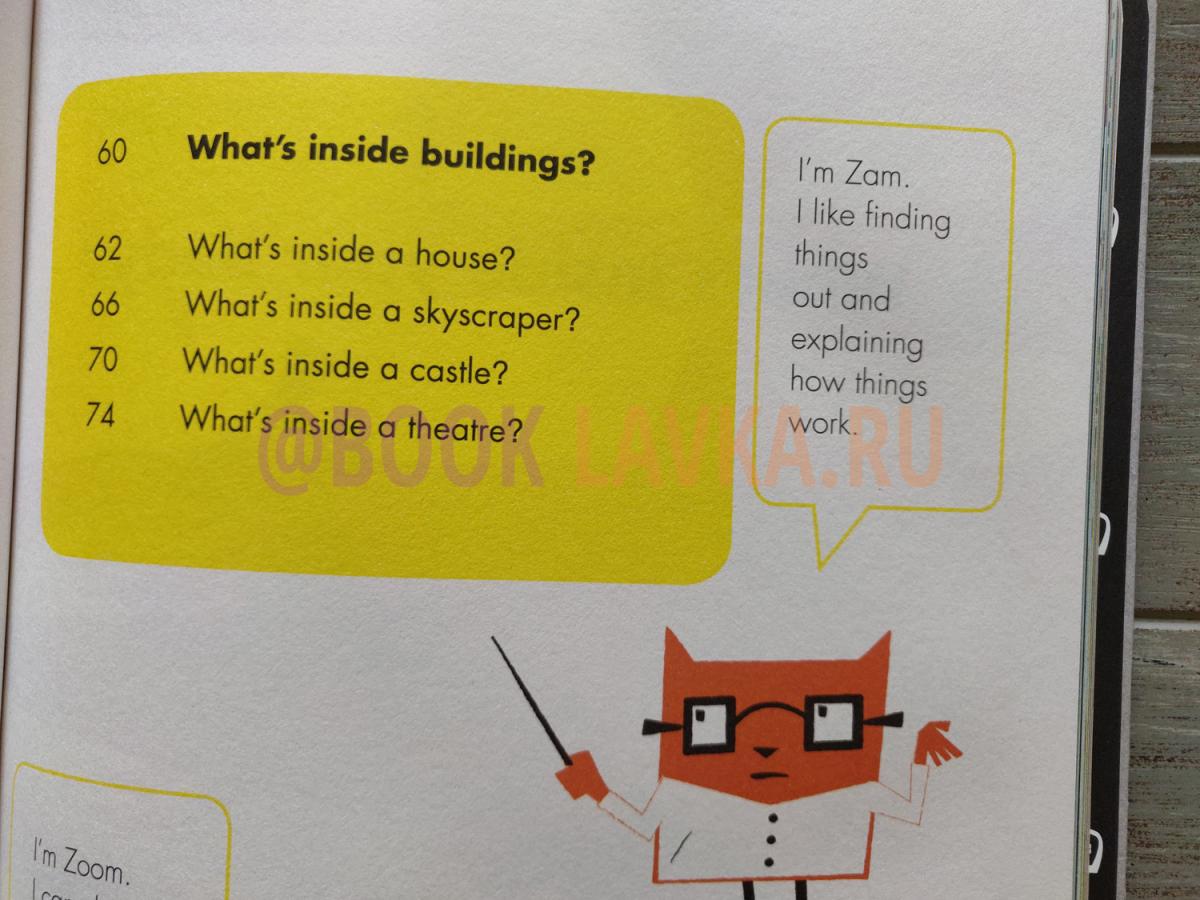 60 What's inside buildings?
62 What's inside a house?
66 What's inside a skyscraper?
70 What's inside a castle?
74 What's inside a theatre?
I'm Zam.
I like finding
things
out and
explaining
how things
work.
@BOOK LAVKA.RU
I'm Zoom.
I